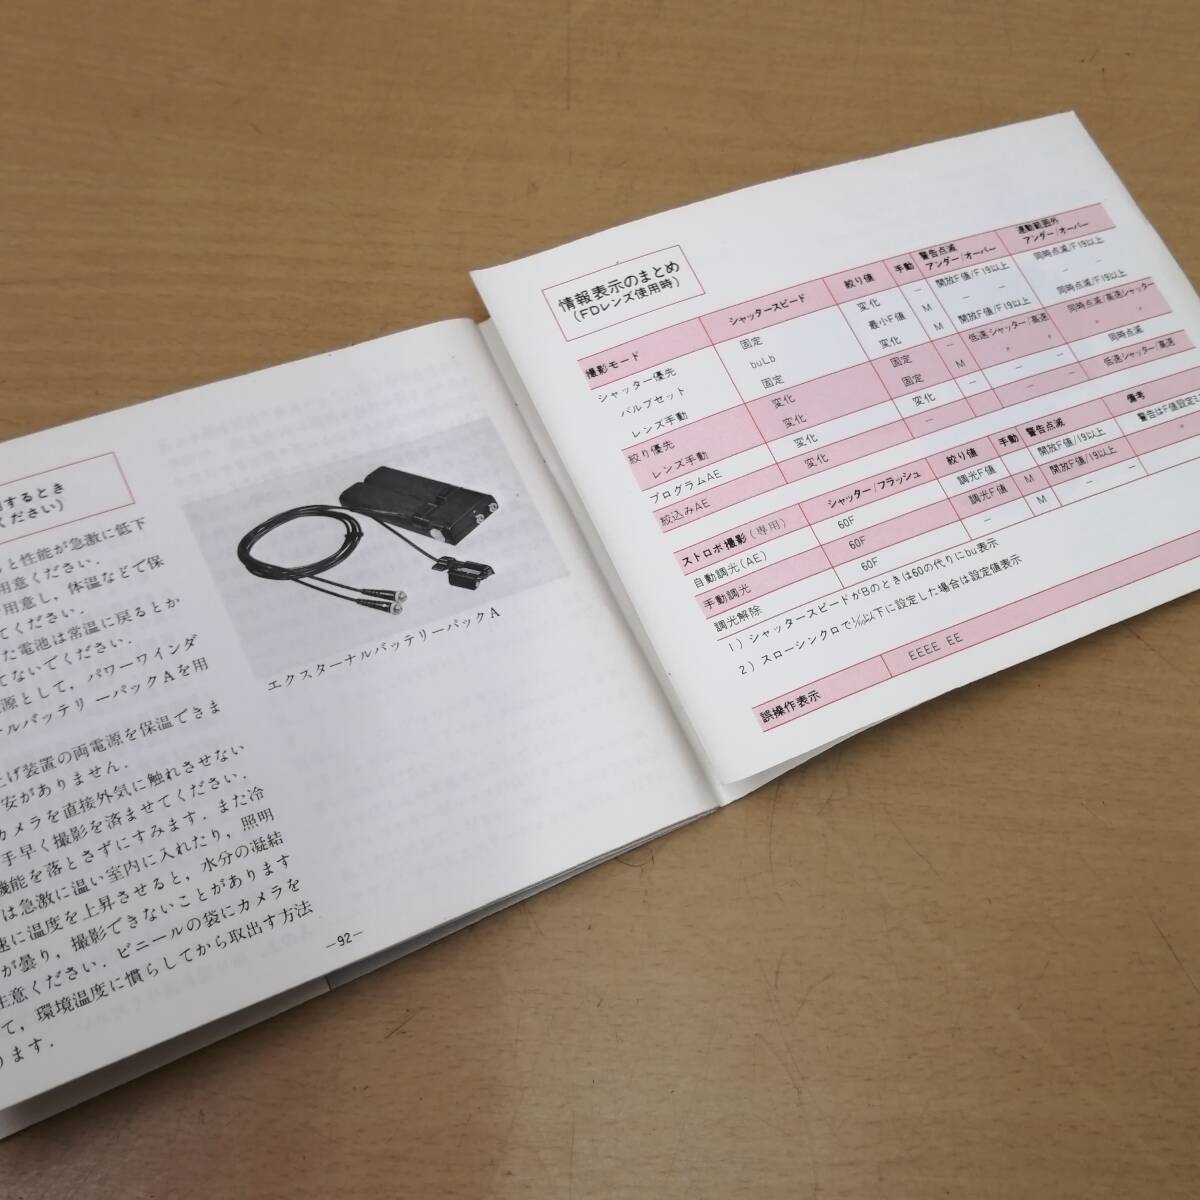 用するとき
ください）
と性能が急激に低下
用意ください．
用意し，体温などで保
てください．
た電池は常温に戻るとか
てないでください．
源として，パワーワインダ
ルバッテリーパックＡを用
上げ装置の両電源を保温できま
安がありません．
カメラを直接外気に触れさせない
手早く撮影を済ませてください．また冷
機能を落とさずにすみます．
は急激に温い室内に入れたり，照明
速に温度を上昇させると，水分の凝結
が曇り，撮影できないことがあります
注意ください．ビニールの袋にカメラを
て，環境温度に慣らしてから取出す方法
ります．
エクスターナルバッテリーパックＡ
—92—
情報表示のまとめ
（FDレンズ使用時）
撮影モード シャッタースピード 絞り値 手動 警告点滅 アンダー/オーバー 連動範囲外 アンダー/オーバー
シャッター優先 固定 変化 — 開放F値/F19以上 同時点滅/F19以上
バルブセット buLb 最小F値 M — — — —
レンズ手動 固定 変化 M 開放F値/F19以上 同時点滅/F19以上
絞り優先 変化 固定 — 低速シャッター/高速 同時点滅/高速シャッター
レンズ手動 変化 固定 M 〃 〃 〃 〃
プログラムAE 変化 変化 — — — 同時点滅
絞込みAE 変化 — — — — 低速シャッター/高速
ストロボ撮影（専用） シャッター/フラッシュ 絞り値 手動 警告点滅 備考
自動調光（AE） 60F 調光F値 開放F値/19以上 警告はF値設定
手動調光 60F 調光F値 M 開放F値/19以上 〃
調光解除 60F — M — —
1）シャッタースピードがBのときは60の代りにbu表示
2）スローシンクロで1/60以下に設定した場合は設定値表示
誤操作表示 EEEE EE